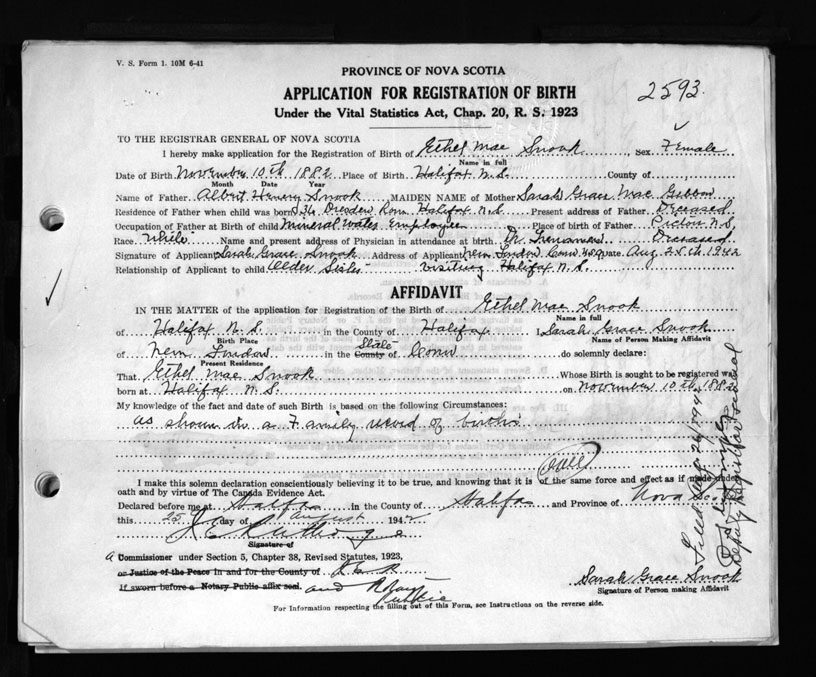 V. S. Form 1. 10M 6-41
PROVINCE OF NOVA SCOTIA
APPLICATION FOR REGISTRATION OF BIRTH
2593.
Under the Vital Statistics Act, Chap. 20, R. S. 1923
TO THE REGISTRAR GENERAL OF NOVA SCOTIA
I hereby make application for the Registration of Birth of Ethel Mae Snook, Sex Female
Name in full
Date of Birth November 10th 1882 Place of Birth Halifax N.S. County of
Month Date Year
Name of Father Albert Henry Snook MAIDEN NAME of Mother Sarah Grace Mac Gibbon
Residence of Father when child was born 36 Dresden Row Halifax N.S. Present address of Father Deceased
Occupation of Father at Birth of child Mineral Water Employee Place of Birth of father Pictou N.S.
Race White Name and present address of Physician in attendance at birth. Dr. Deceased
Signature of Applicant Sarah Grace Snook Address of Applicant New London Conn Date Aug. 25th 1942
Relationship of Applicant to child Older Sister visiting Halifax N.S.
AFFIDAVIT
IN THE MATTER of the application for Registration of the Birth of Ethel Mae Snook
Name in full
of Halifax N.S. in the County of Halifax I Sarah Grace Snook
Birth Place Name of Person Making Affidavit
State
of New London in the County of Conn do solemnly declare:
Present Residence
That Ethel Mae Snook Whose Birth is sought to be registered was
born at Halifax N.S. on November 10th 1882
My knowledge of the fact and date of such Birth is based on the following Circumstances:
As shown in a Family record of births
I make this solemn declaration conscientiously believing it to be true, and knowing that it is of the same force and effect as if made under
oath and by virtue of The Canada Evidence Act.
Declared before me at Halifax in the County of Halifax and Province of Nova Scotia
this 25 day of August 1942
Signature of
A Commissioner under Section 5, Chapter 38, Revised Statutes, 1923,
or Justice of the Peace in and for the County of
if sworn before a Notary Public affix seal. and Notary Public
Sarah Grace Snook
Signature of Person making Affidavit
For Information respecting the filling out of this Form, see Instructions on the reverse side.
Deputy Registrar General